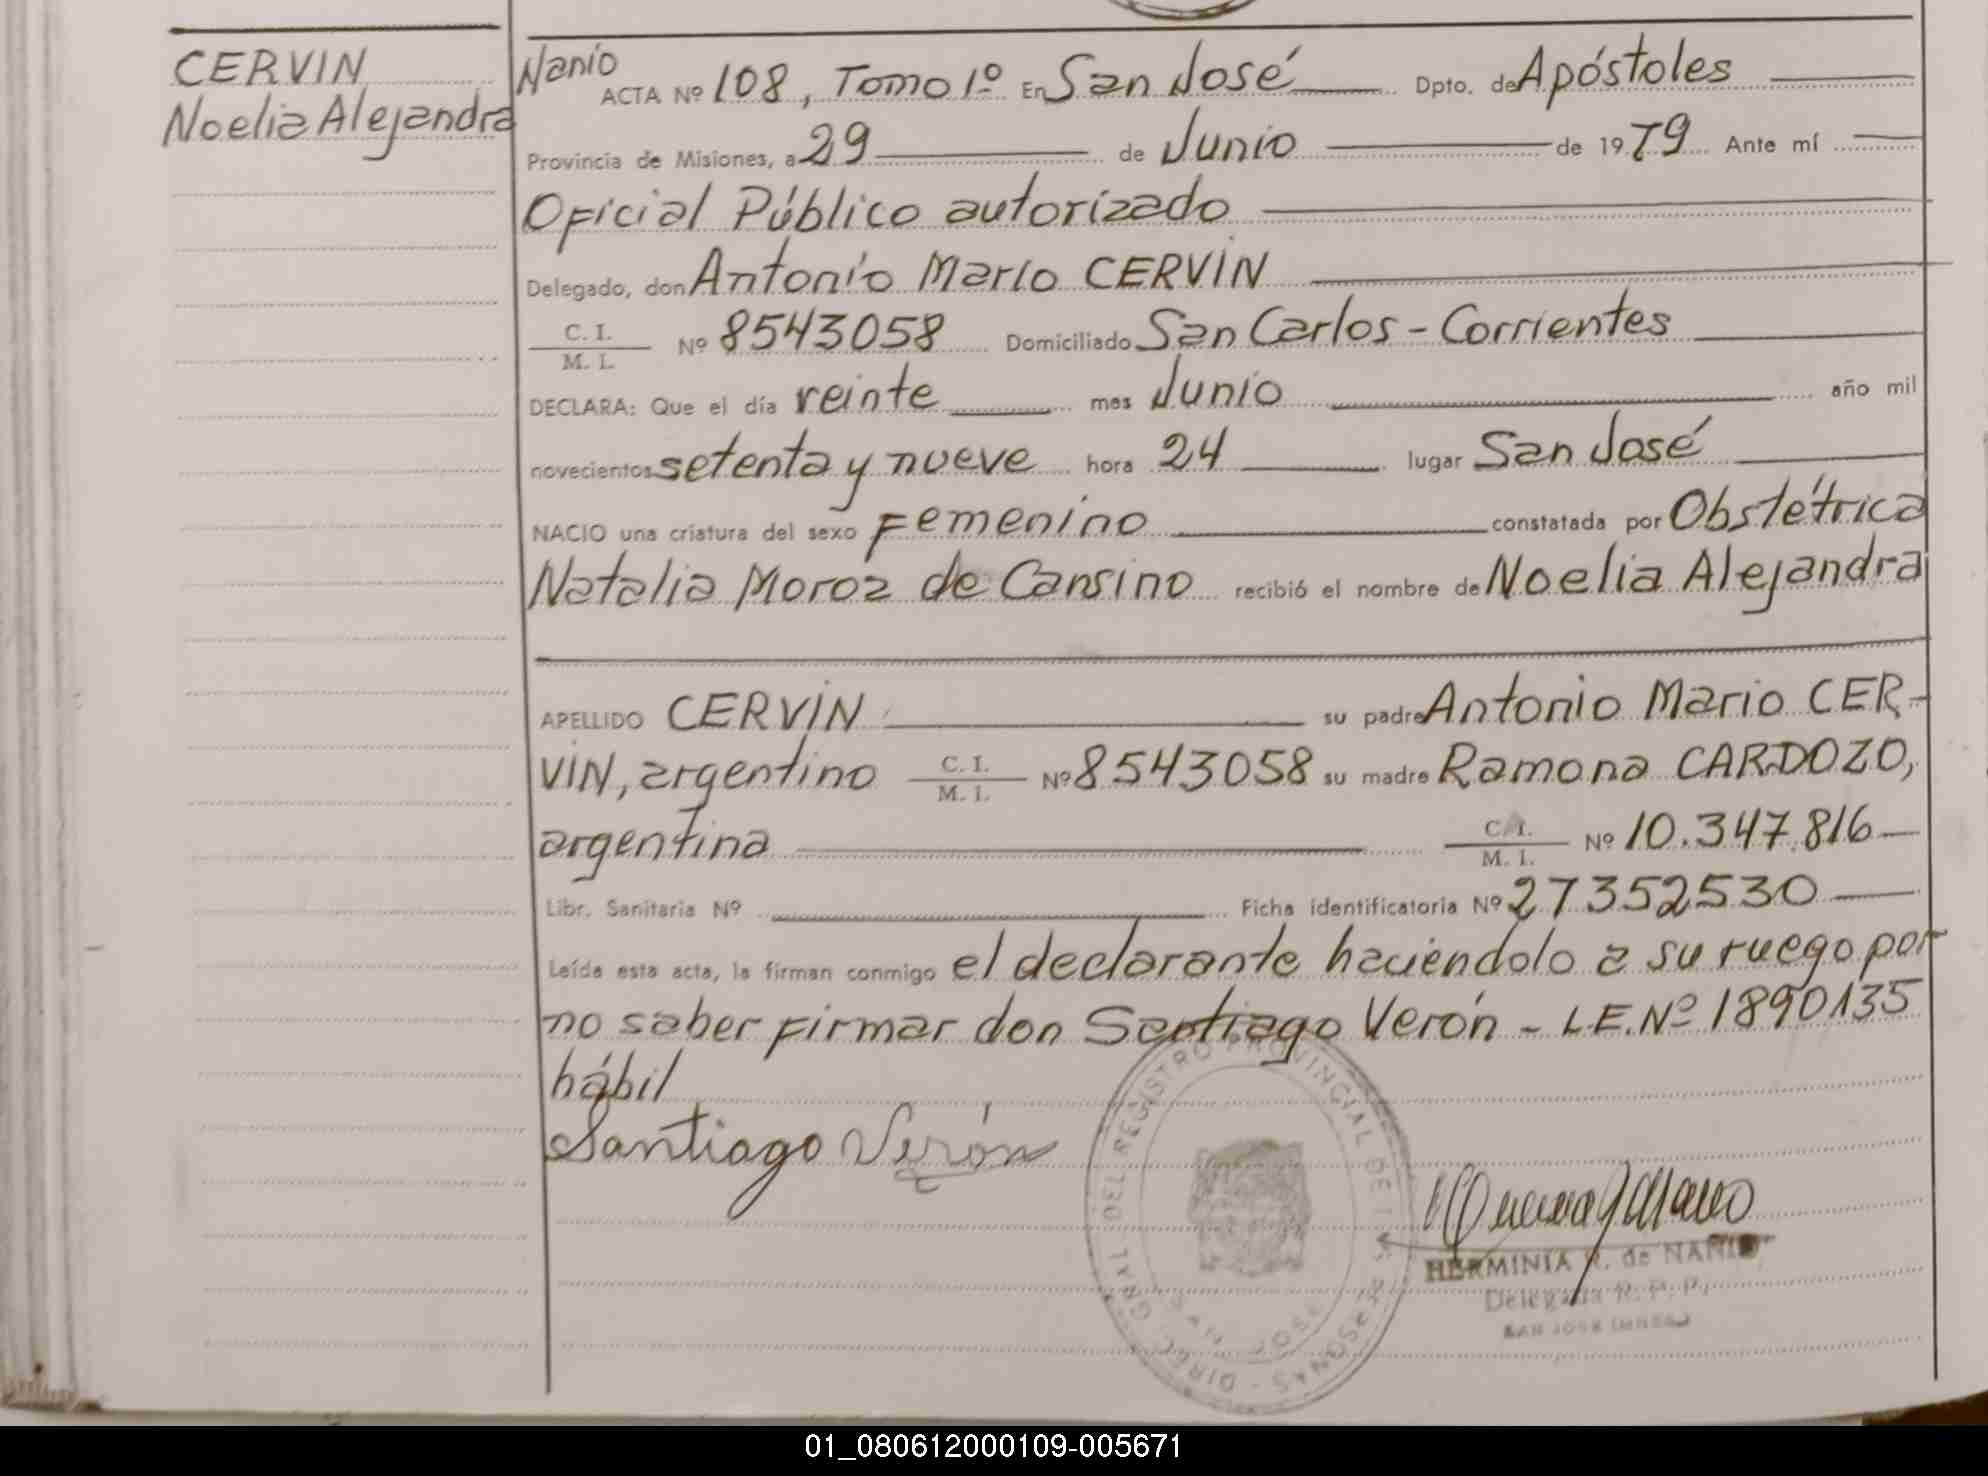 CERVIN
Noelia Alejandra
Nanío
ACTA Nº 108, Tomo 1º En San José Dpto. de Apóstoles
Provincia de Misiones, a 29 de Junio de 1979 Ante mí
Oficial Público autorizado
Delegado, don Antonio Mario CERVIN
C. I.
M. I. Nº 8543058 Domiciliado San Carlos - Corrientes
DECLARA: Que el día veinte mes Junio año mil
novecientos setenta y nueve hora 24 lugar San José
NACIO una criatura del sexo Femenino constatada por Obstétrica
Natalia Moroz de Cansino recibió el nombre de Noelia Alejandra
APELLIDO CERVIN su padre Antonio Mario CER-
VIN, argentino C. I. M. I. Nº 8543058 su madre Ramona CARDOZO,
argentina C. I. M. I. Nº 10.347.816
Libr. Sanitaria Nº Ficha identificatoria Nº 27352530
Leída esta acta, la firman conmigo el declarante haciéndolo a su ruego por
no saber firmar don Santiago Verón - L.E. Nº 1890135
hábil
Santiago Verón
DIREC. GRAL. DEL REGISTRO PROVINCIAL DE LAS PERSONAS
SAN JOSE
HERMINIA R. de NANIO
Delegada R. P. P.
SAN JOSE (MNES.)
01_080612000109-005671